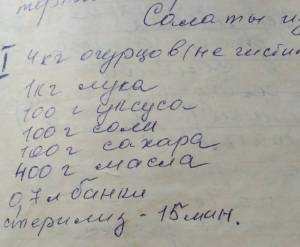 Салаты из
I 4 кг огурцов (не чистит
1 кг лука
100 г уксуса
100 г соли
100 г сахара
400 г масла
0,7 л банки
стерилиз - 15 мин.